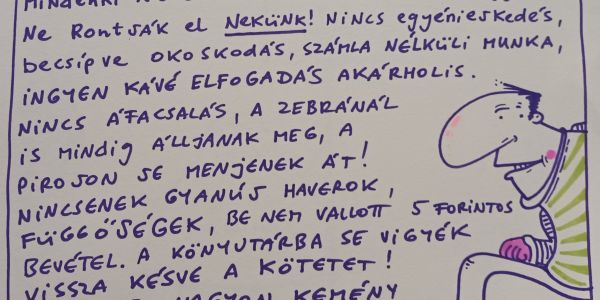 MINDENKI
NE RONTSÁK el NEKÜNK! NINCS egyénieskedés,
becsípve OKOSKODÁS, SZÁMLA NÉLKÜLI MUNKA,
INGYEN KÁVÉ ELFOGADÁS AKÁRHOLIS.
NINCS ÁFACSALÁS, A ZEBRÁNÁL
is MINDIG ÁLLJANAK MEG, A
PIROSON SE MENJENEK ÁT!
NINCSENEK GYANÚS HAVEROK,
FÜGGŐSÉGEK, BE NEM VALLOTT 5 FORINTOS
BEVÉTEL. A KÖNYUTÁRBA SE VIGYÉK
VISSZA KÉSVE A KÖTETET!
NAGYON KEMÉNY